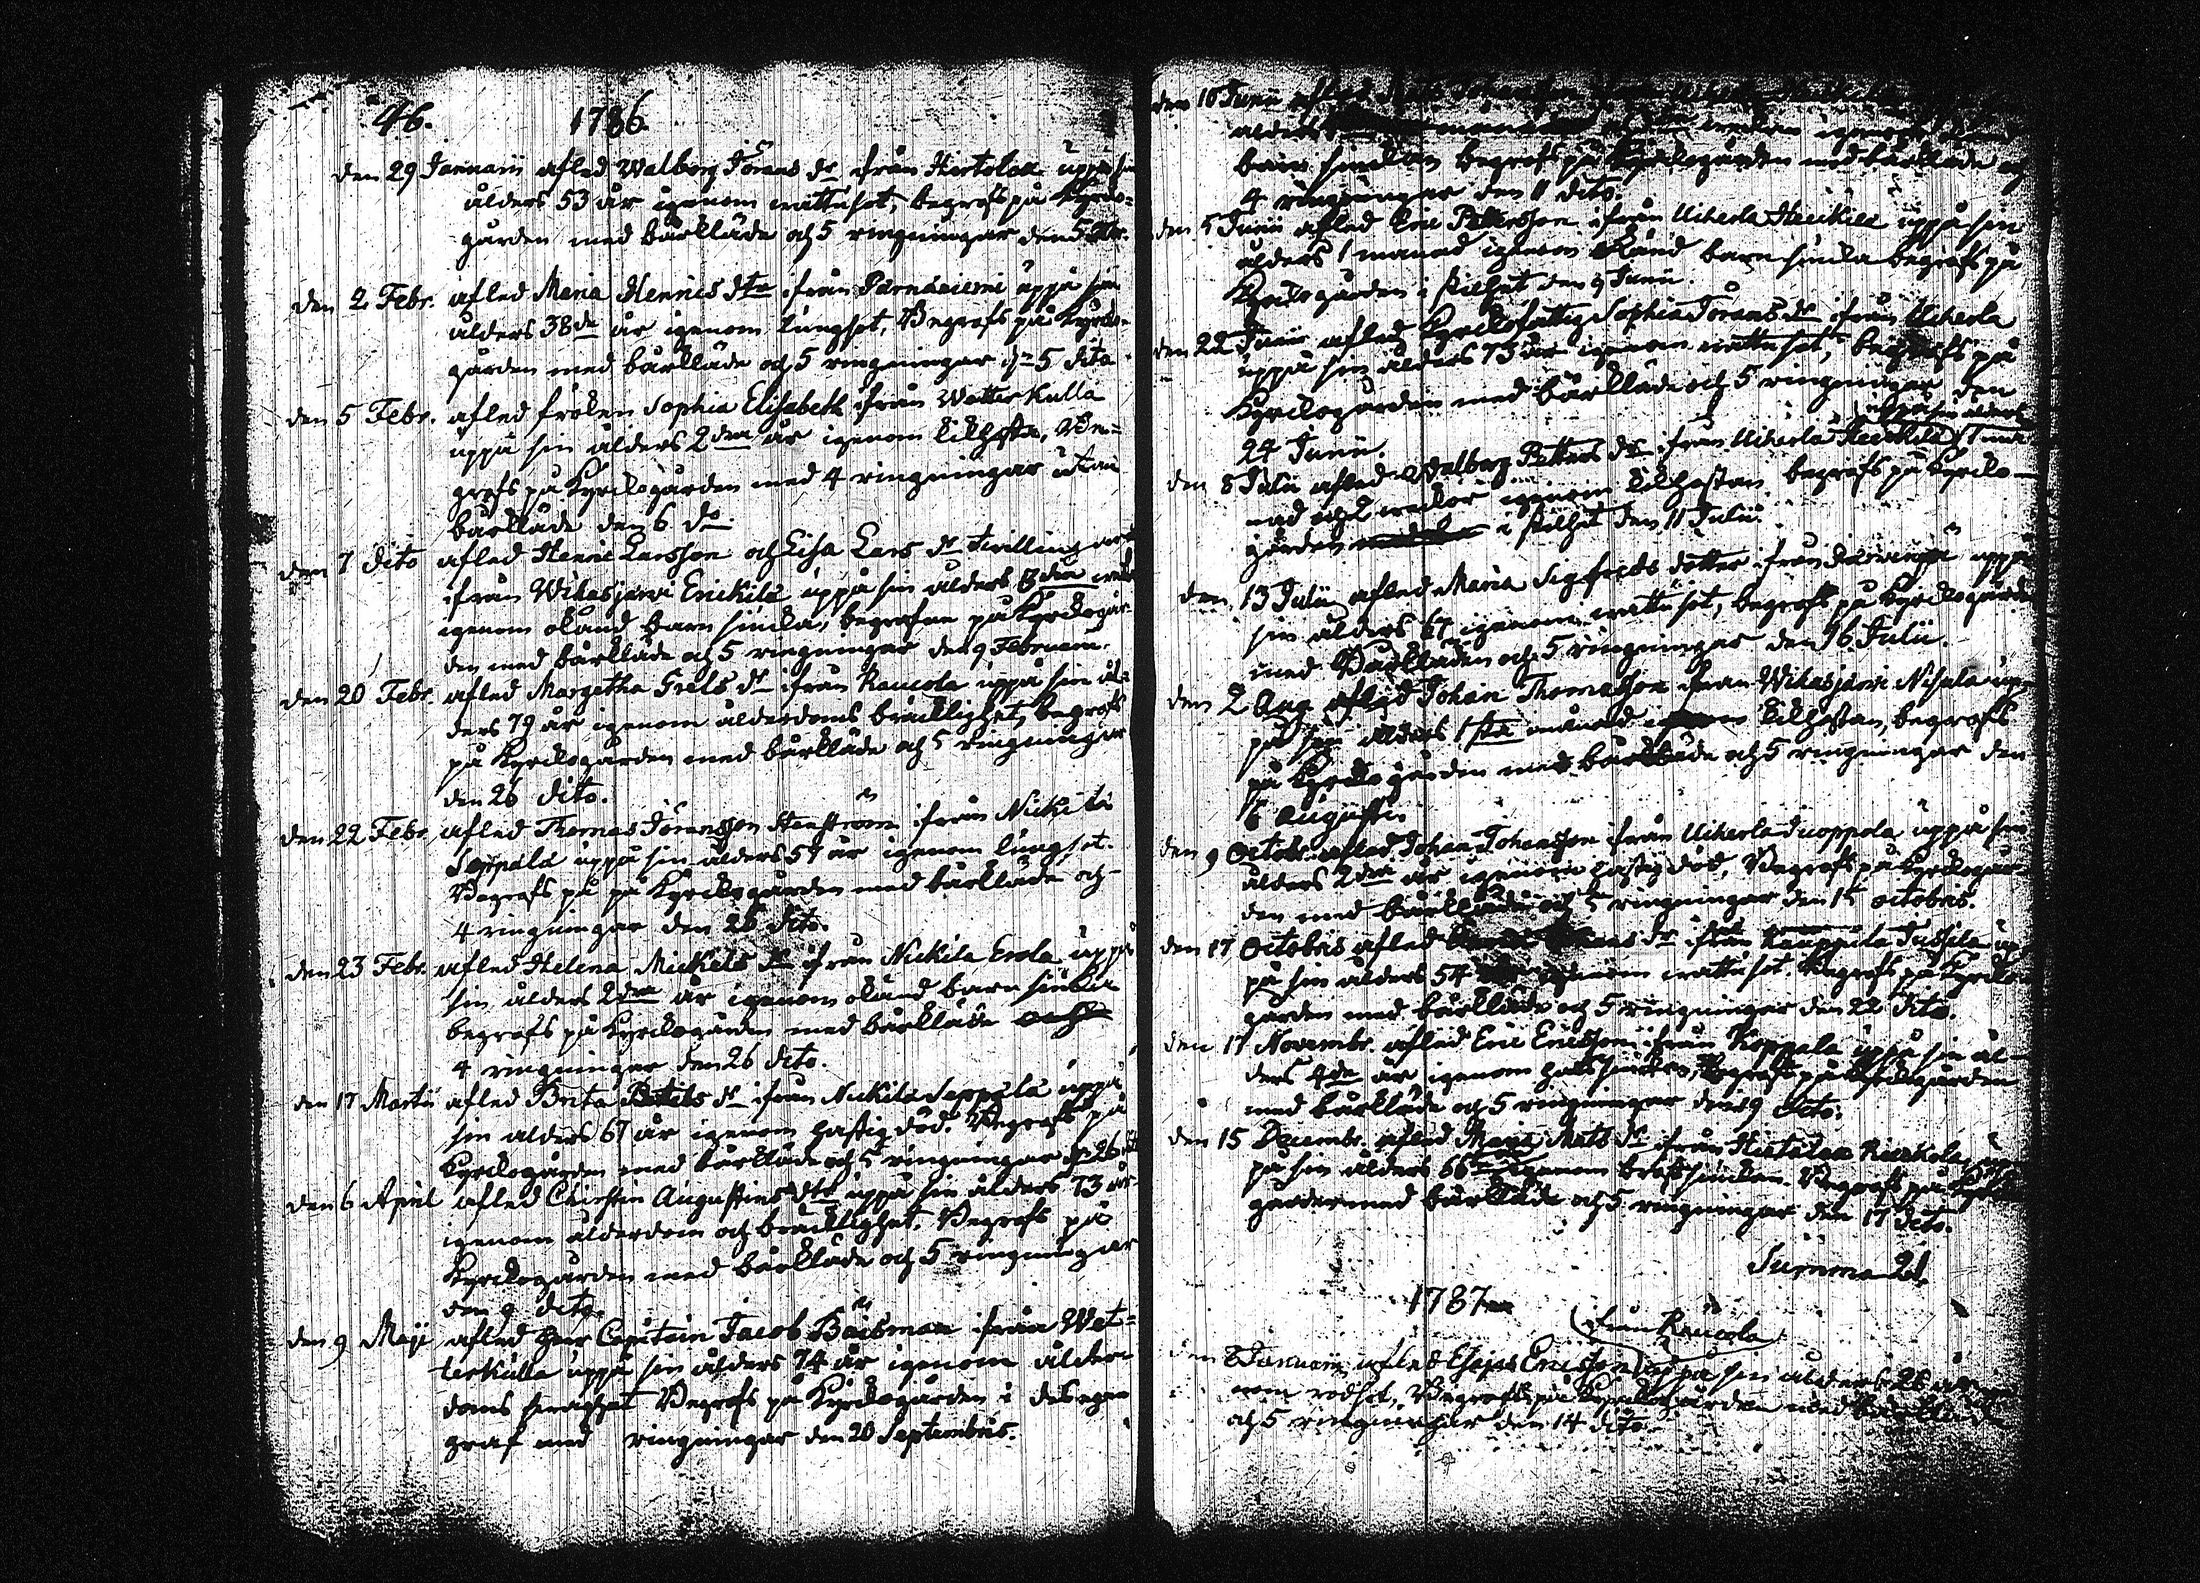 46. 1786.
den 29 Januarii afled Walborg Jörans dr ifrån Hertolax uppå sin
ålders 53 år igenom wattusot, begrofs på Kyrcko-
gården med bårkläde och 5 ringningar den 5 Febr.
den 2 Febr. afled Maria Henrics dtr ifrån Parnaniemi uppå sin
ålders 38de år igenom lungsot, Begrofs på Kyrcko-
gården med bårkläde och 5 ringningar dn 5 dito
den 5 Febr. afled fröken Sophia Elisabeth ifrån Wetterkulla
uppå sin ålders 2dra år igenom kikhosta, Be-
grofs på Kyrckogården med 4 ringningar utan
bårkläde den 6 do.
den 7 dito afled Henric Larsson och Lisa Lars dr twillingar
ifrån Wihasjärvi Erickilä uppå sin ålders 3dia
igenom okänd barnsjucka, begrofne på Kyrckogår-
den med bårkläde och 5 ringningar den 9 Februarii.
den 20 Febr. afled Margetha Grels dr ifrån Raucola uppå sin ål-
ders 79 år igenom ålderdoms bräcklighet, begrofs
på Kyrckogården med bårkläde och 5 ringningar
den 26 dito.
den 22 Febr. afled Thomas Jöransson ifrån Nickilä
Seppälä uppå sin ålders 57 år igenom lungsot.
Begrofs på på Kyrckogården med bårkläde och
4 ringningar den 26 dito.
den 23 Febr. afled Helena Mickels dr ifrån Nickilä Erola uppå
sin ålders 2dra år igenom okänd barnsjucka
begrofs på Kyrckogården med bårkläde och
4 ringningar den 26 dito.
den 17 Martii afled Brita dr ifrån Nickilä Seppälä uppå
sin ålders 67 år igenom hastig död. Begrofs på
Kyrckogården med bårkläde och 5 ringningar dn 26
den 6 April afled Christin Augustins dtr uppå sin ålders 73 år
igenom ålderdom och bräcklighet. Begrofs på
Kyrckogården med bårkläde och 5 ringningar
den 9 dito.
den 9 Maji afled Herr Capitain Jacob Båisman ifrån Wet-
terkulla uppå sin ålders 74 år igenom ålder-
doms swaghet Begrofs på Kyrckogården i des egen
graf med ringningar den 20 Septembris.
den 10 Junii afled
ålders igenom
barn sjuckan begrofs på Kyrckogården med bårkläde och
4 ringningar den 11 dito.
den 5 Junii afled Eric Pettersson ifrån Uckerla Heickilä uppå sin
ålders 1 månad igenom okänd barnsjucka begrofs på
Kyrckogården i stillhet den 9 Junii.
den 22 Junii afled Kyrckofattig Sophia Jörans dr ifrån Uckerla
uppå sin ålders 73 år igenom wattusot, begrofs på
Kyrckogården med bårkläde och 5 ringningar den
24 Junii. uppå sin ålders
den 8 Julii afled Walborg Petters dr ifrån Uckerla Heickilä 1
nad och 2 weckor igenom kikhostan begrofs på Kyrcko-
gården i stillhet den 11 Julii.
den 13 Julii afled Maria Sigfreds dotter ifrån uppå
sin ålders 67 igenom wattusot, begrofs på Kyrckogården
med Bårkläden och 5 ringningar den 16 Julii.
den 2 Aug afled Johan Thomasson ifrån Wihasjärvi Nisula up-
på sin ålders 1sta månad igenom kikhostan, begrofs
på Kyrckogården med bårkläde och 5 ringningar den
6 Augusti.
den 9 Octobr. afled Johan Johansson ifrån Uckerla Juoppola uppå sin
ålders 2dra år igenom hastig död, Begrofs på Kyrckogår-
den med bårkläde och 5 ringningar den 15 octobris.
den 17 Octobris afled dr ifrån Kauppila Jussila up
på sin ålders 54 igenom wattusot. Begrofs på Kyrcko-
gården med bårkläde och 5 ringningar den 22 dito.
den 17 Novembr. afled Eric Ericsson ifrån Koppala uppå sin ål-
ders 4de år igenom halssjuckan, Begrofs på Kyrckogården
med bårkläde och 5 ringningar den 19 dito.
den 15 Decembr. afled Maria Mats dr ifrån up
på sin ålders 66 igenom bröstsjuckan. Begrofs på Kyrcko
gården med bårkläde och 5 ringningar den 17 dito.
Summa 21.
1787
ifrån Raucola
den 8 Januarii afled Esaias Ericsson uppå sin ålders 26 år ige
nom rödsot, Begrofs på Kyrckogården med bårkläde
och 5 ringningar den 14 dito.